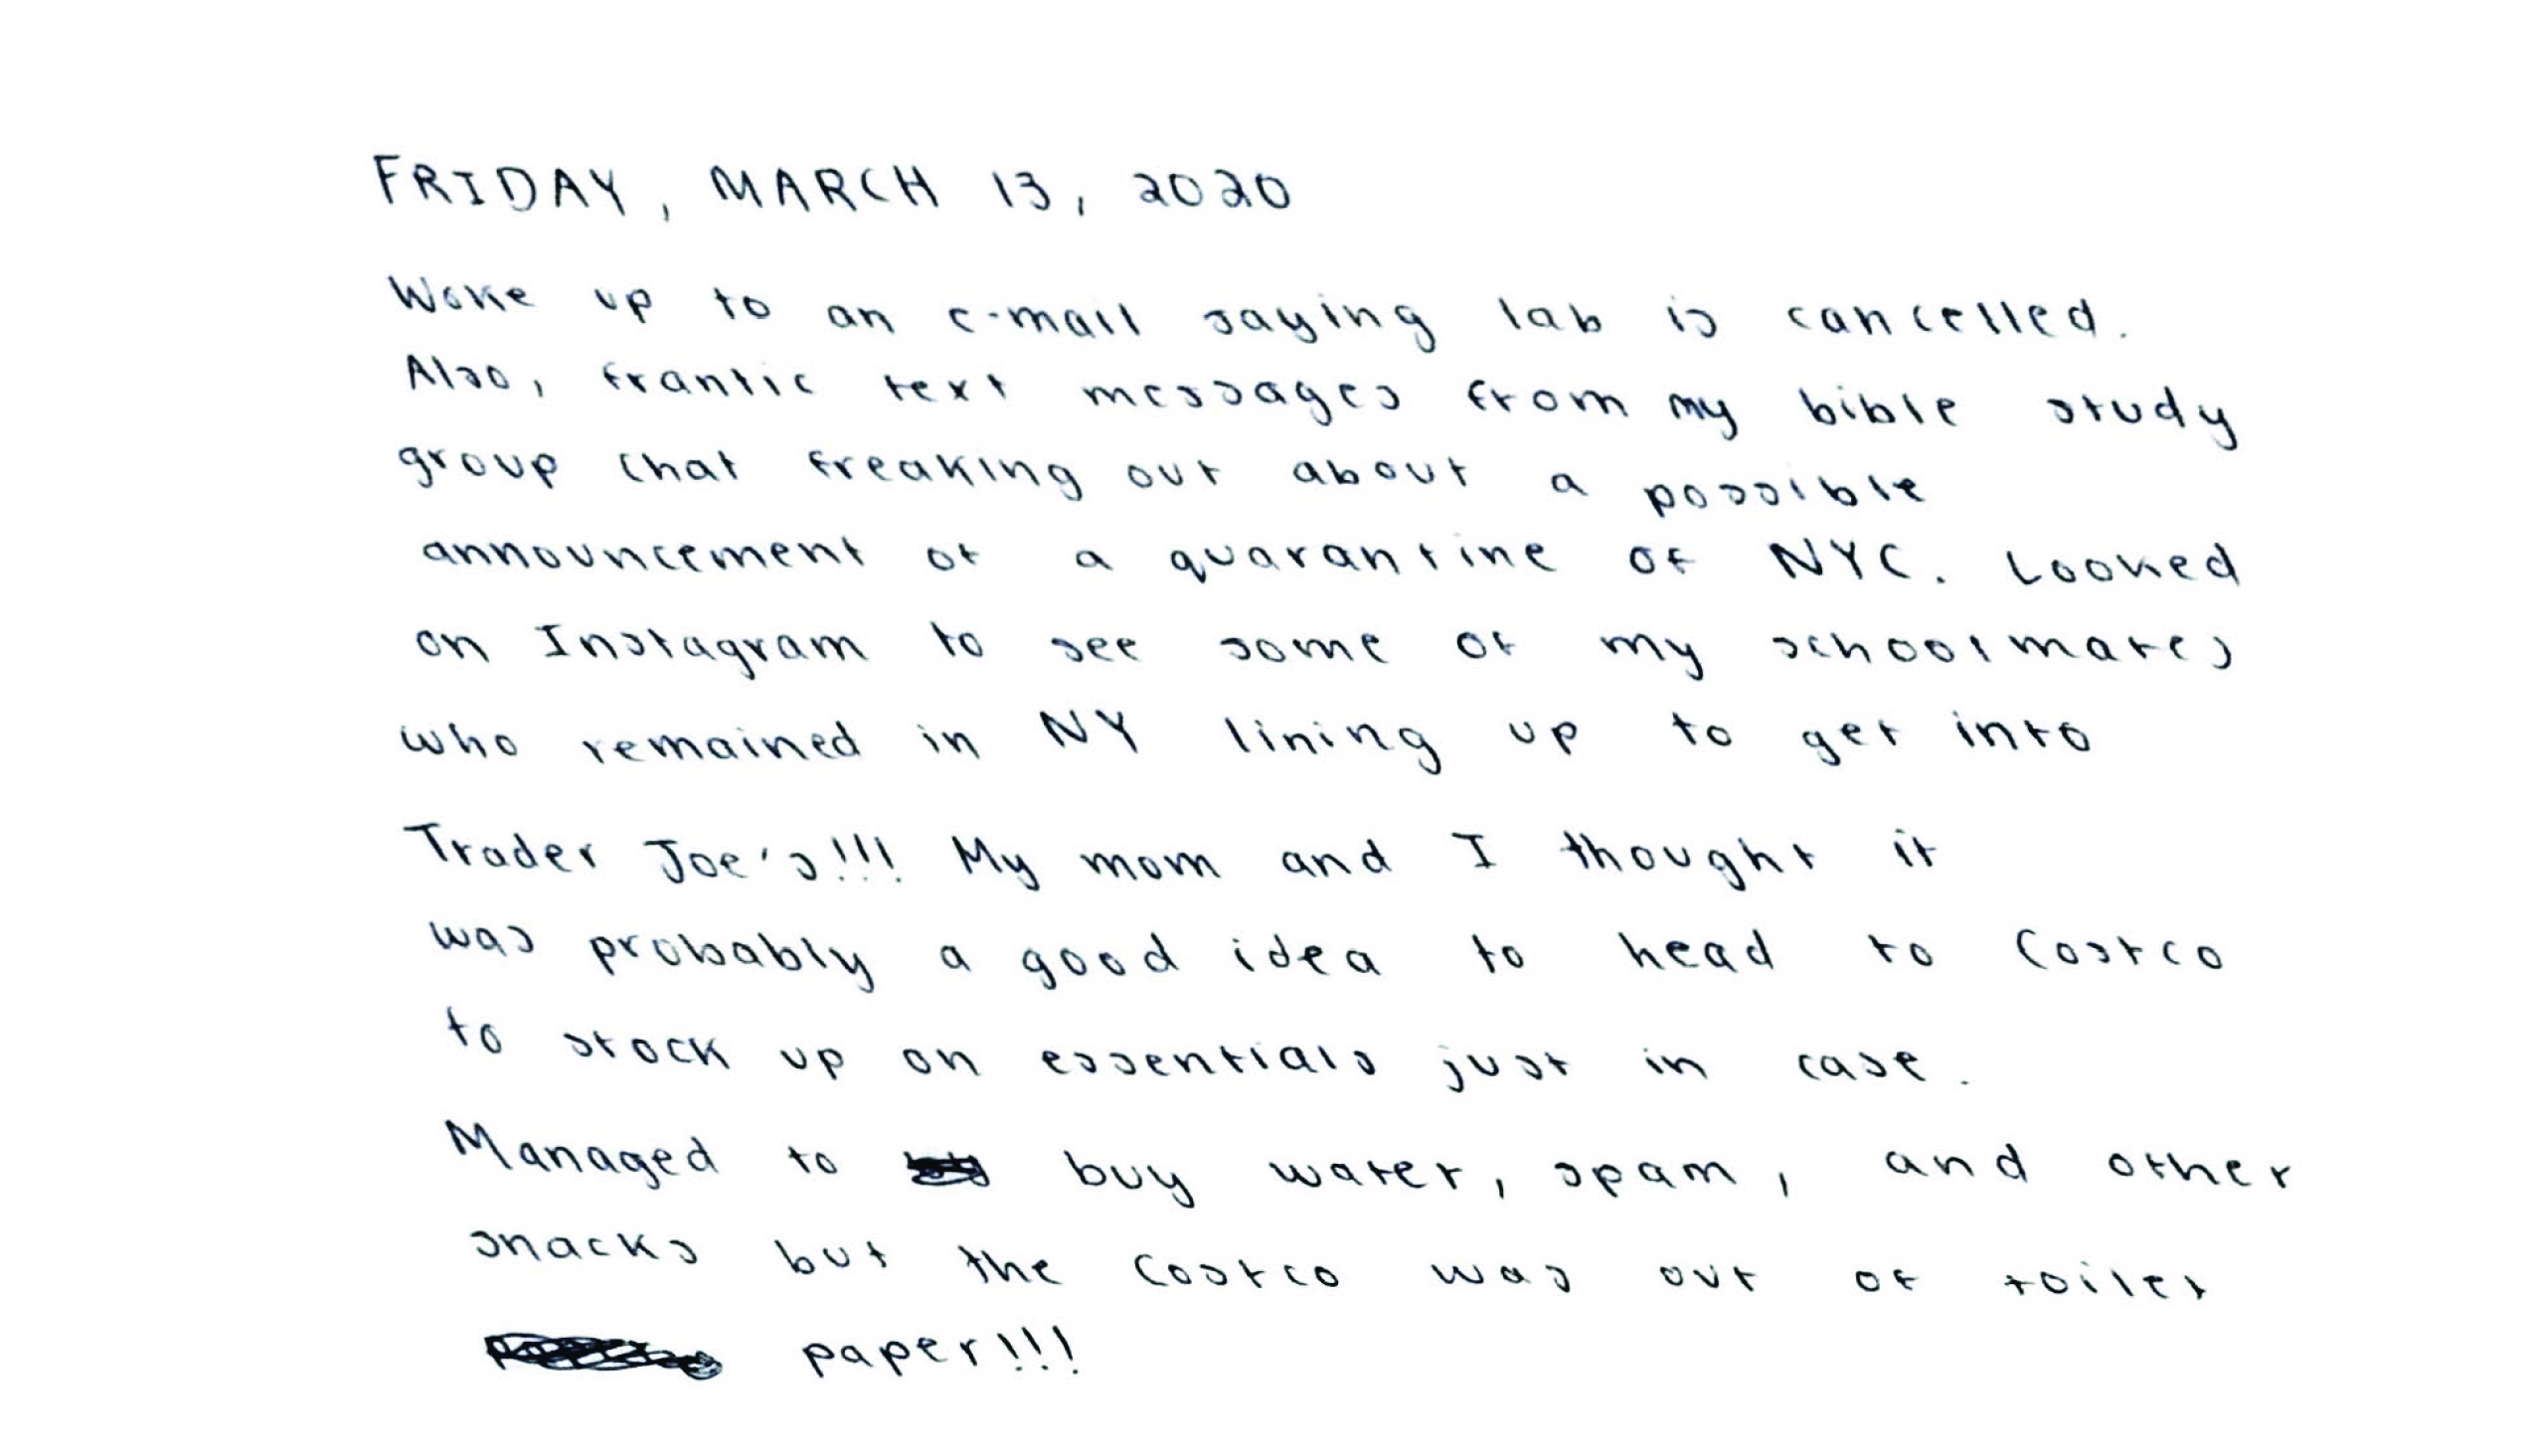 FRIDAY, MARCH 13, 2020
Woke up to an e-mail saying lab is cancelled.
Also, frantic text messages from my bible study
group chat freaking out about a possible
announcement of a quarantine of NYC. Looked
on Instagram to see some of my schoolmates
who remained in NY lining up to get into
Trader Joe's!!! My mom and I thought it
was probably a good idea to head to Costco
to stock up on essentials just in case.
Managed to buy water, spam, and other
snacks but the Costco was out of toilet
paper!!!